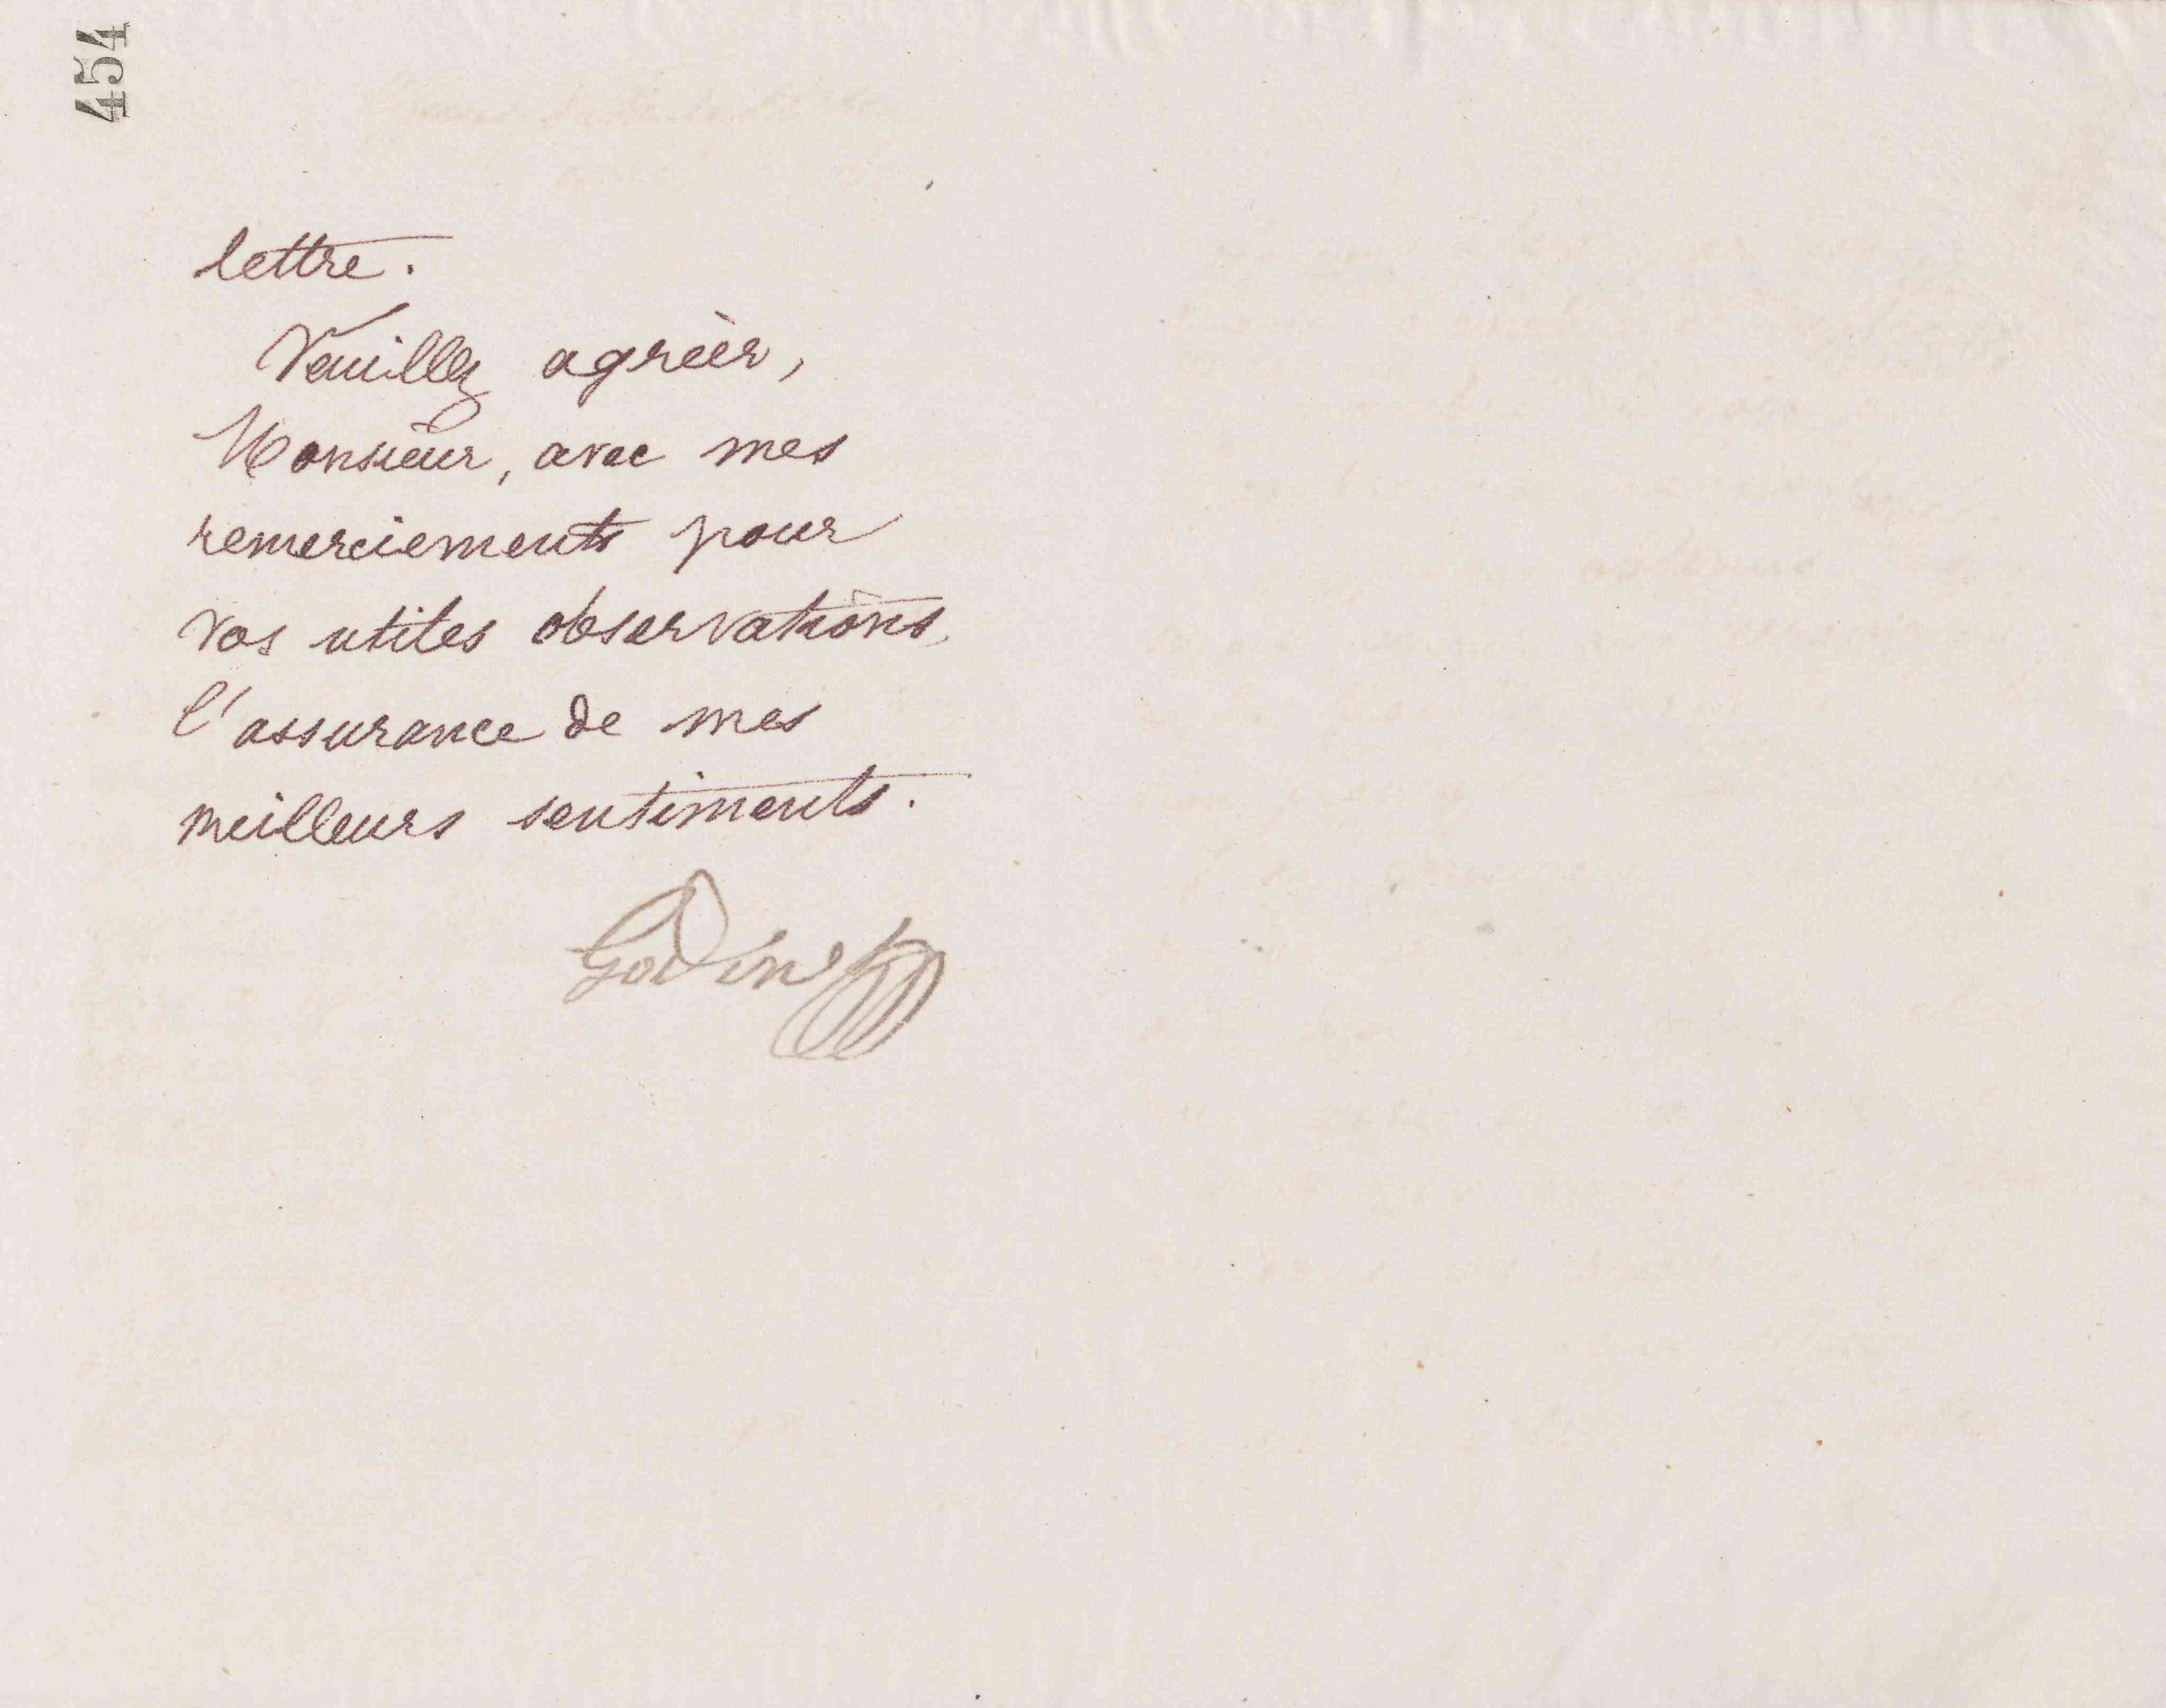 454
lettre.
Veuillez agréer,
Monsieur, avec mes
remerciements pour
vos utiles observations,
l'assurance de mes
meilleurs sentiments.
Godin